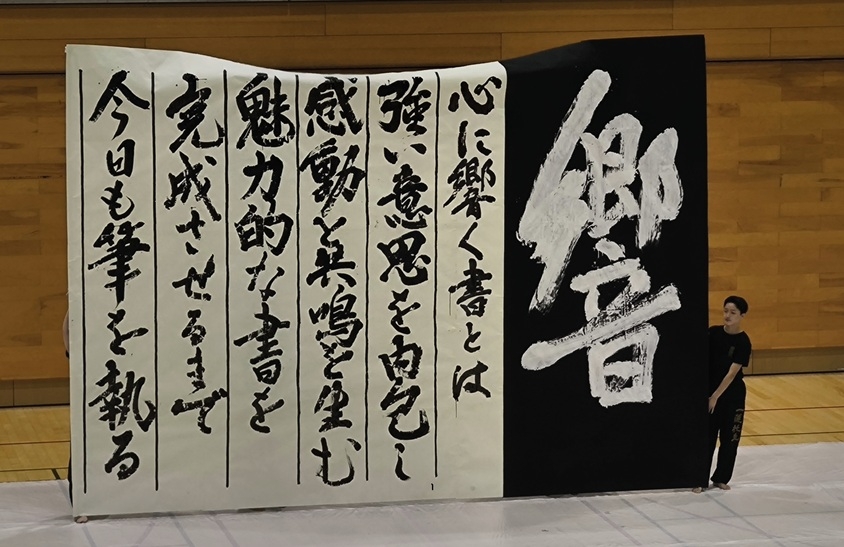 響
心に響く書とは
強い意思を内包し
感動と共鳴を生む
魅力的な書を
完成させるまで
今日も筆を執る